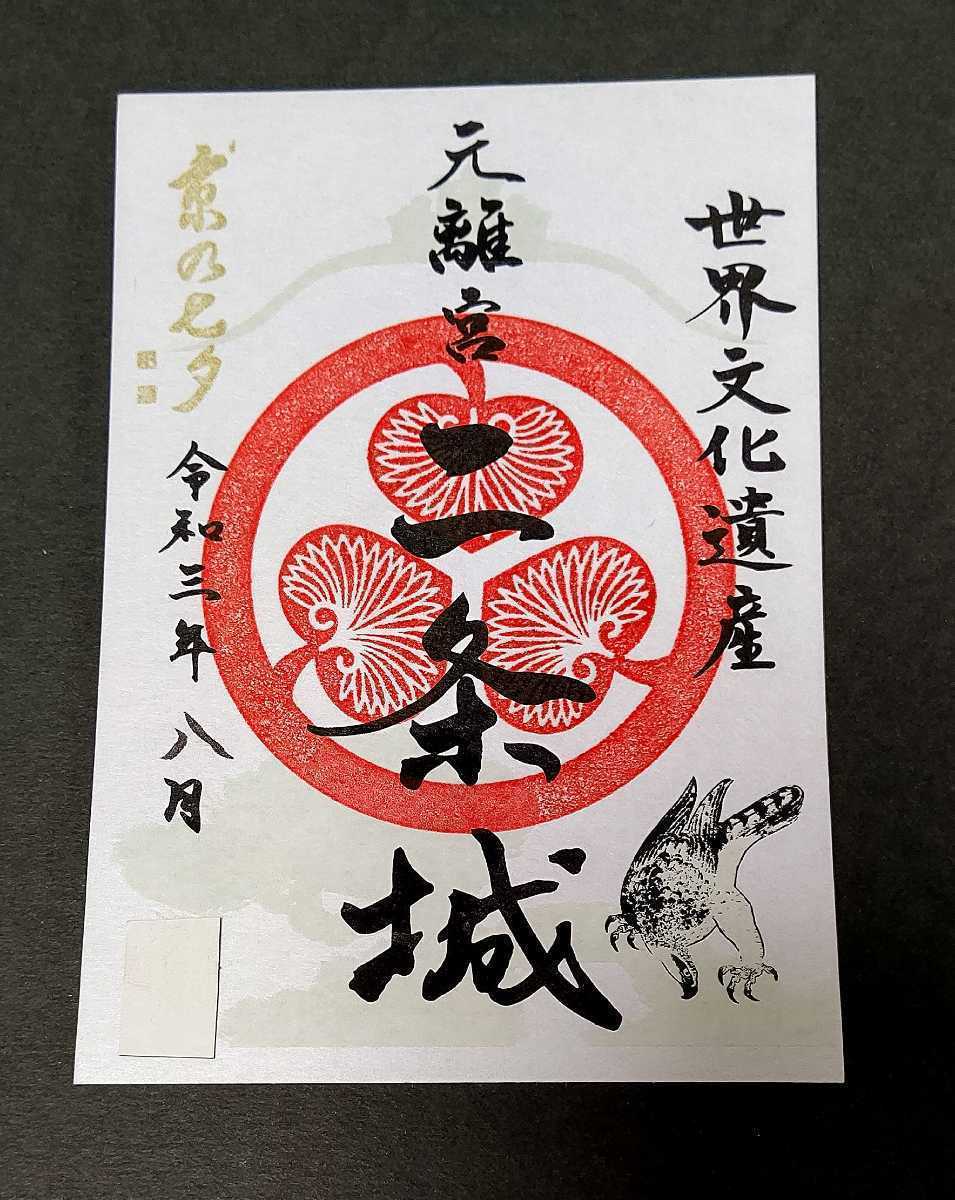 世界文化遺産
元離宮
二条城
京の七夕
令和三年八月